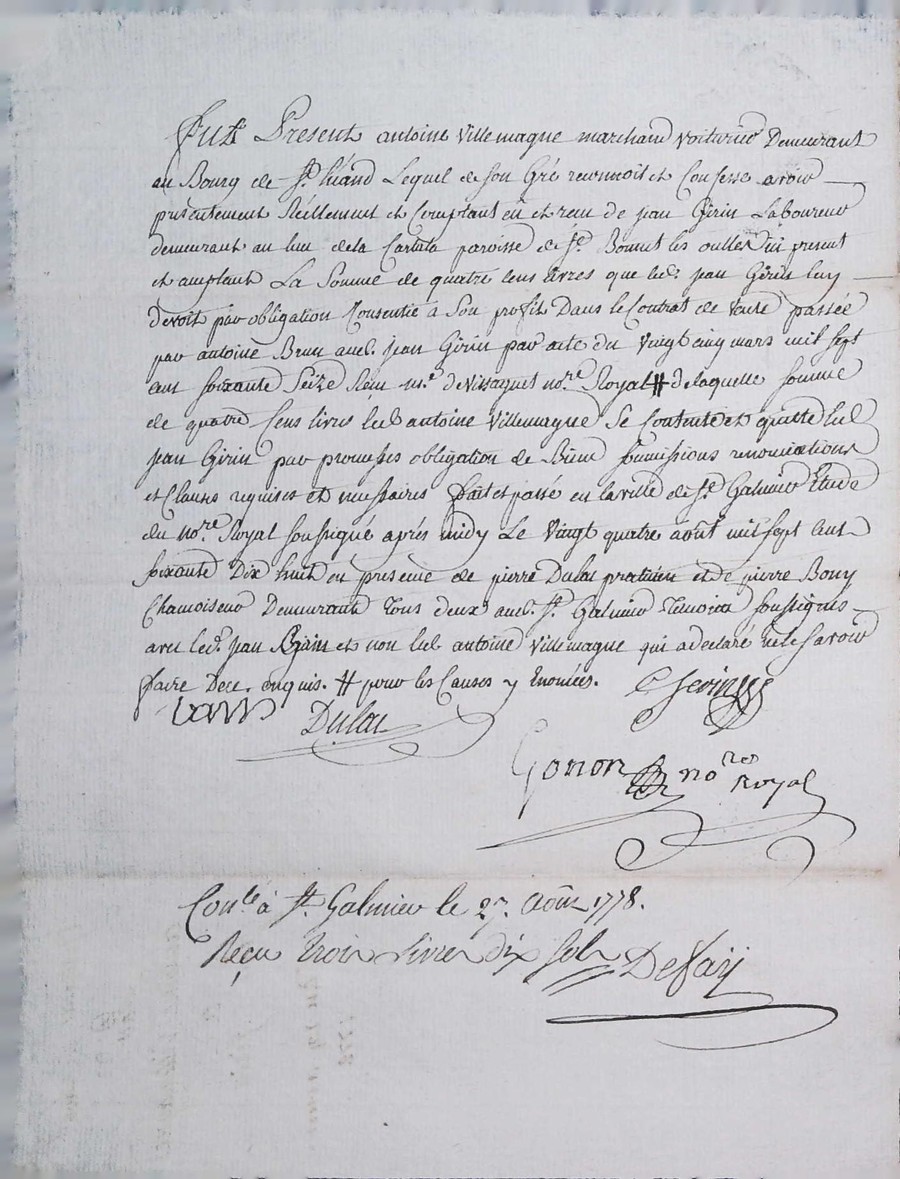 Fut Present antoine Villemagne marchand voiturier Demeurant
au Bourg de St. héand Lequel de son Gré reconnoit et Confesse avoir
présentement Réellement et Comptant eû et recu de jean Girin Laboureur
demeurant au lieu dela paroisse de St. Bonnet les oulles ici present
et acceptant La Somme de quatre Cens livres que led. jean Girin luy
devoit par obligation Consentie à Son profit Dans le Contrat de Vente passée
par antoine Brun aud. jean Girin par acte du Vingt cinq mars mil sept
cent soixante Seize Reçu me. no.re Royal # delaquelle somme
de quatre Cens livres led antoine Villemagne Se Contente et quitte led
jean Girin par promesses obligation de Biens soumissions renonciations
et Clauses requises et necessaires fait et passé en la ville de St. Galmier Etude
du no.re Royal soussigné aprés midy Le Vingt quatre août mil sept cent
soixante Dix huit en présence de pierre Dulac praticien et de pierre Bony
Chamoiseur Demeurant tous deux aud. St. Galmier Témoins soussignés
avec led. jean Girin et non led antoine Villemagne qui a declaré ne le savoir
faire Dece enquis. # pour les Causes y Enoncées.
Dulac
Gonon no.re Royal
Con.lé à St. Galmier le 27. Août 1778.
Reçu trois livres dix sols Defay